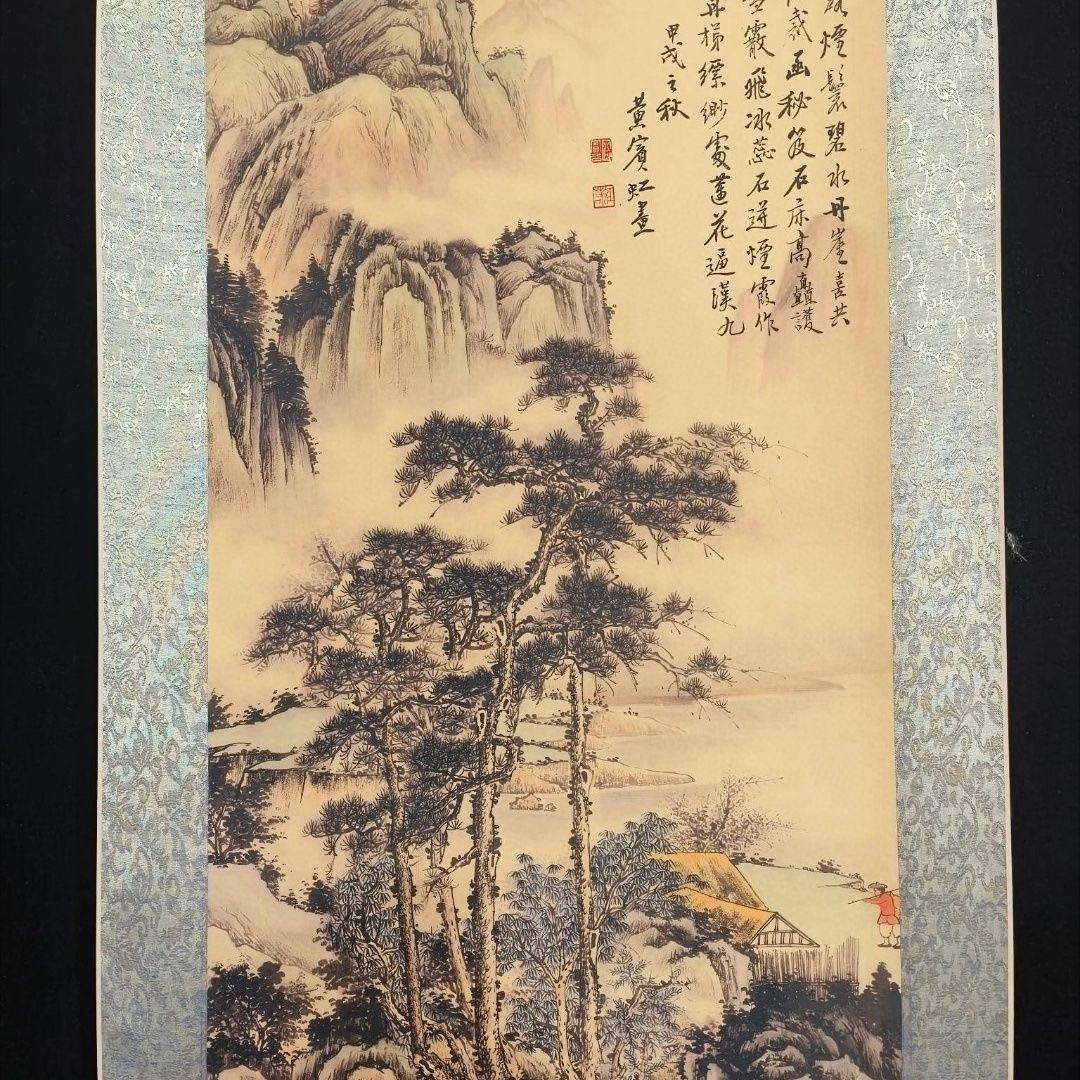 煙鬟碧水丹崖喜共
函秘笈石床高矗護
霰飛冰蕊石迸煙霞作
丹梯縹緲處蓮花逼漢九
甲戌之秋
黄賓虹畫